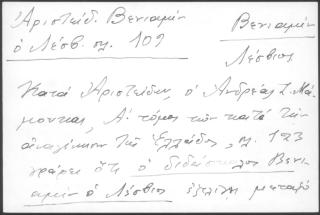 Ἀριστείδ. Βενιαμίν
ὁ Λέσβ. σελ. 109
Βενιαμίν
Λέσβιος
Κατὰ Ἀριστείδην, ὁ Ἀνδρέας Ζ. Μά-
μουκας, Α΄ τόμος τῶν κατὰ τὴν
ἀναγέννησιν τῆς Ἑλλάδος, σελ. 123
γράφει ὅτι ὁ διδάσκαλος Βενι-
αμὶν ὁ Λέσβιος ἐστάλη μεταξὺ